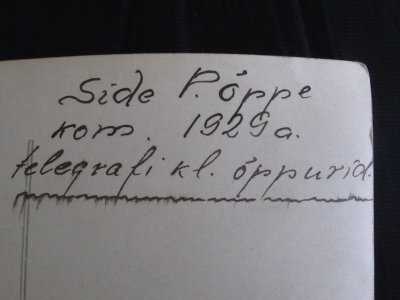 Side P. õppe
kom. 1929 a.
telegrafi kl. õppurid.